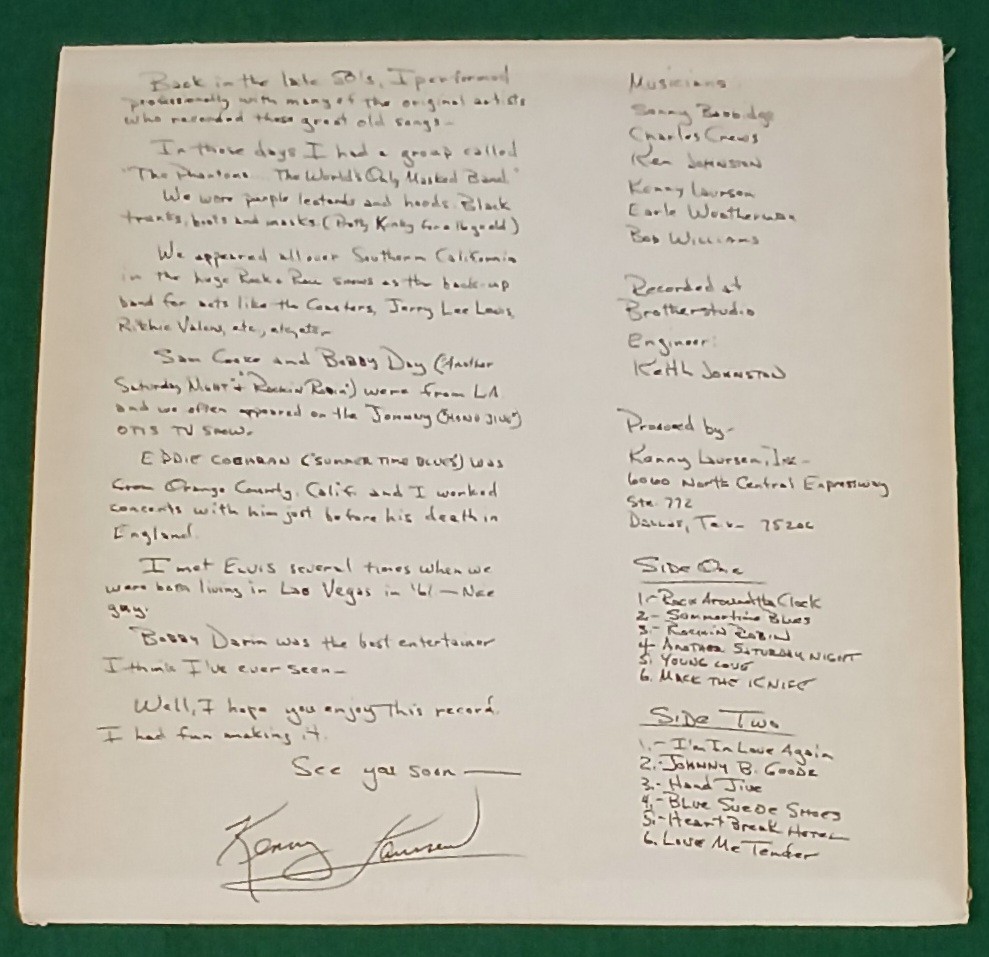 Back in the late 50's, I performed
professionally with many of the original artists
who recorded these great old songs-
In those days I had a group called
"The Phantoms... The World's Only Masked Band."
We wore purple leotards and hoods. Black
trunks, boots and masks. (Pretty Kinky for a 16 yr old)
We appeared all over Southern California
in the huge Rock & Roll shows as the back-up
band for acts like the Coasters, Jerry Lee Lewis,
Ritchie Valens, etc., etc, etc-
Sam Cooke and Bobby Day ("Another
Saturday Night" & "Rockin Robin") were from LA
and we often appeared on the Johnny ("Hand Jive")
OTIS TV SHOW.
EDDIE COCHRAN ("SUMMER TIME BLUES") was
from Orange County, Calif. and I worked
concerts with him just before his death in
England.
I met ELVIS several times when we
were both living in Las Vegas in '61 - Nice
guy.
Bobby Darin was the best entertainer
I think I've ever seen-
Well, I hope you enjoy this record.
I had fun making it.
See you soon —
Kenny Laursen
Musicians:
Sonny
Charles Crews
Ken JOHNSTON
Kenny Laursen
Earle Weatherman
Bob Williams
Recorded at
Brotherstudio
Engineer:
Keith JOHNSTON
Produced by-
Kenny Laursen, Inc-
6060 North Central Expressway
Ste. 772
DALLAS, Tex- 75206
SIDE One
1- Rock Around the Clock
2- Summertime Blues
3- ROCKIN ROBIN
4- ANOTHER SATURDAY NIGHT
5. YOUNG LOVE
6. MACK THE KNIFE
SIDE Two
1.- I'm In Love Again
2.- JOHNNY B. GOODE
3.- Hand Jive
4.- BLUE SUEDE SHOES
5.- Heart Break HOTEL
6. LOVE Me Tender